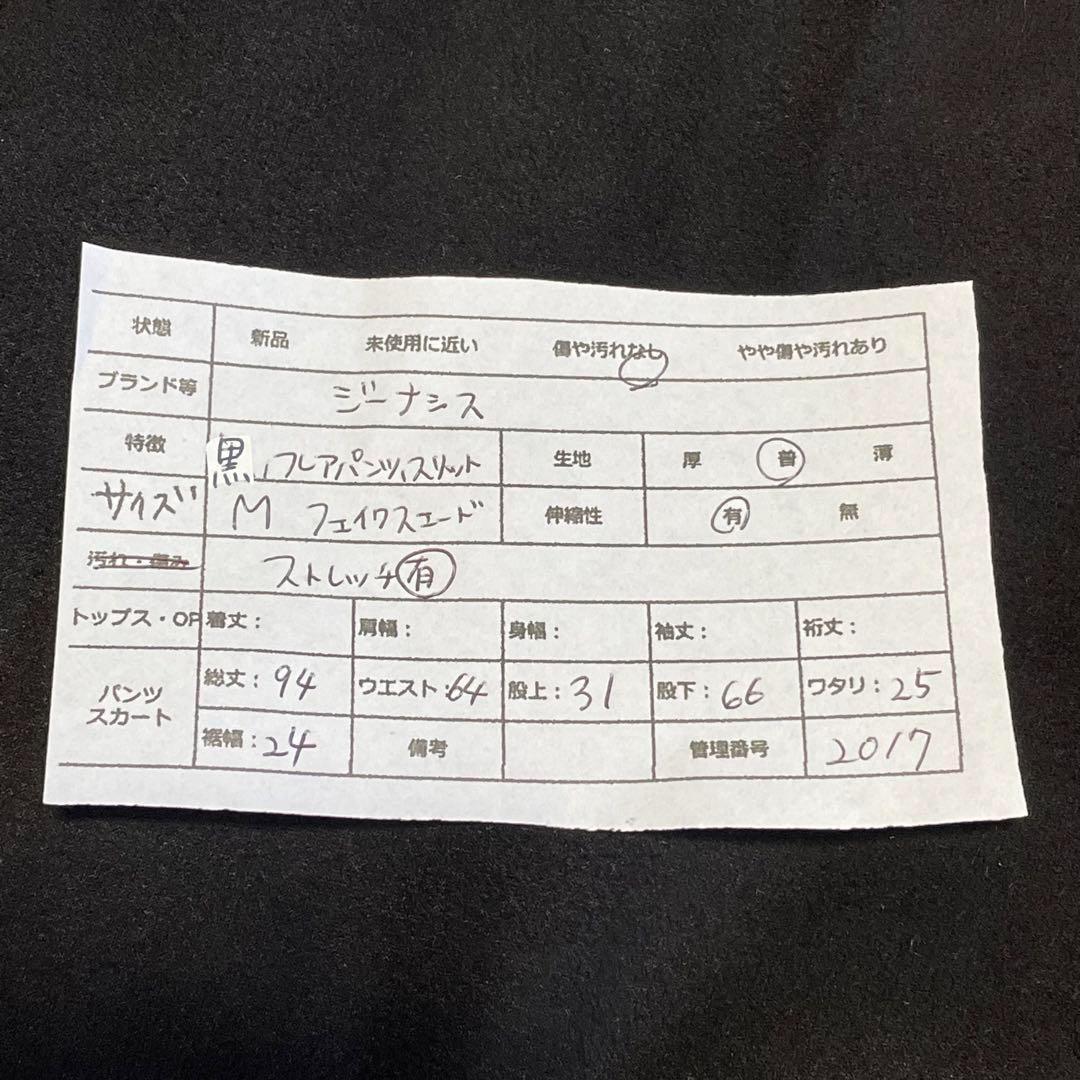 状態 新品 未使用に近い 傷や汚れなし やや傷や汚れあり
ブランド等 ジーナシス
特徴 黒、フレアパンツ、スリット 生地 厚 普 薄
サイズ M フェイクスエード 伸縮性 有 無
汚れ・傷み ストレッチ有
トップス・OP 着丈： 肩幅： 身幅： 袖丈： 裄丈：
パンツ スカート 総丈：94 ウエスト：64 股上：31 股下：66 ワタリ：25
裾幅：24 備考 管理番号 2017